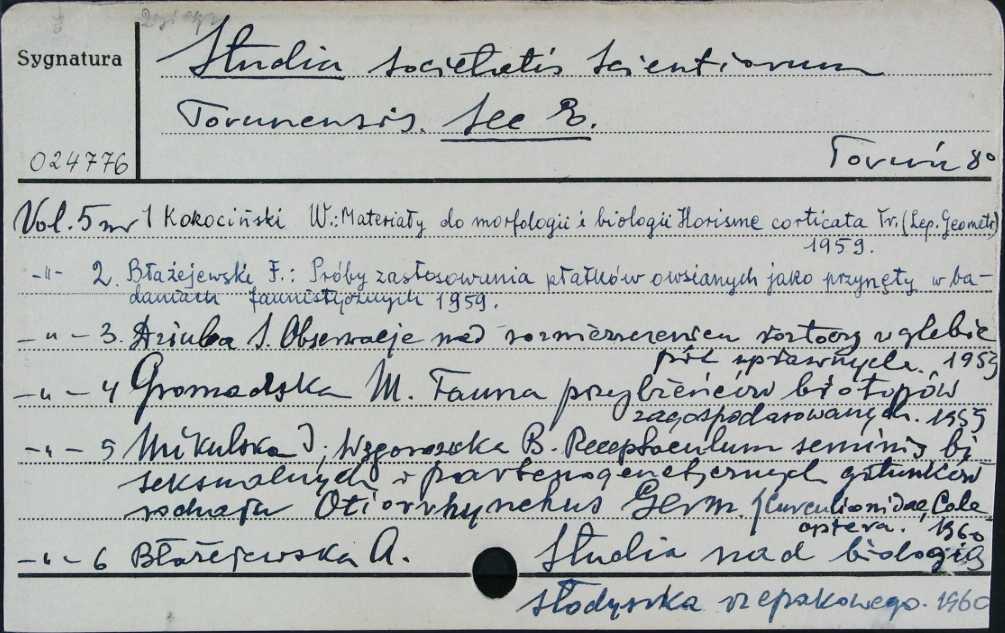 Sygnatura
Studia societatis scientiarum
Torunensis. See E.
024776
Toruń 8°
Vol. 5 nr 1 Kokociński W.: Materiały do morfologii i biologii Horisme corticata Tr. (Lep. Geometr)
1959.
-"- 2. Błażejewski F.: Próby zastosowania płatków owsianych jako przynęty w ba-
daniach faunistycznych 1959.
-"- 3. Dziuba S. Obserwacje nad rozmieszczeniem roztoczy w glebie
pól uprawnych. 1959
-"- 4 Gromadska M. Fauna przybieńców biotopów
zagospodarowanych. 1959
-"- 5 Mikulska J, B. Receptaculum seminis bi-
seksualnych i partenogenetycznych gatunków
rodzaju Otiorrhynchus Germ. /Curculionidae, Cole
optera. 1960
-"- 6 Błażejewska A. Studia nad biologią
słodyszka rzepakowego. 1960